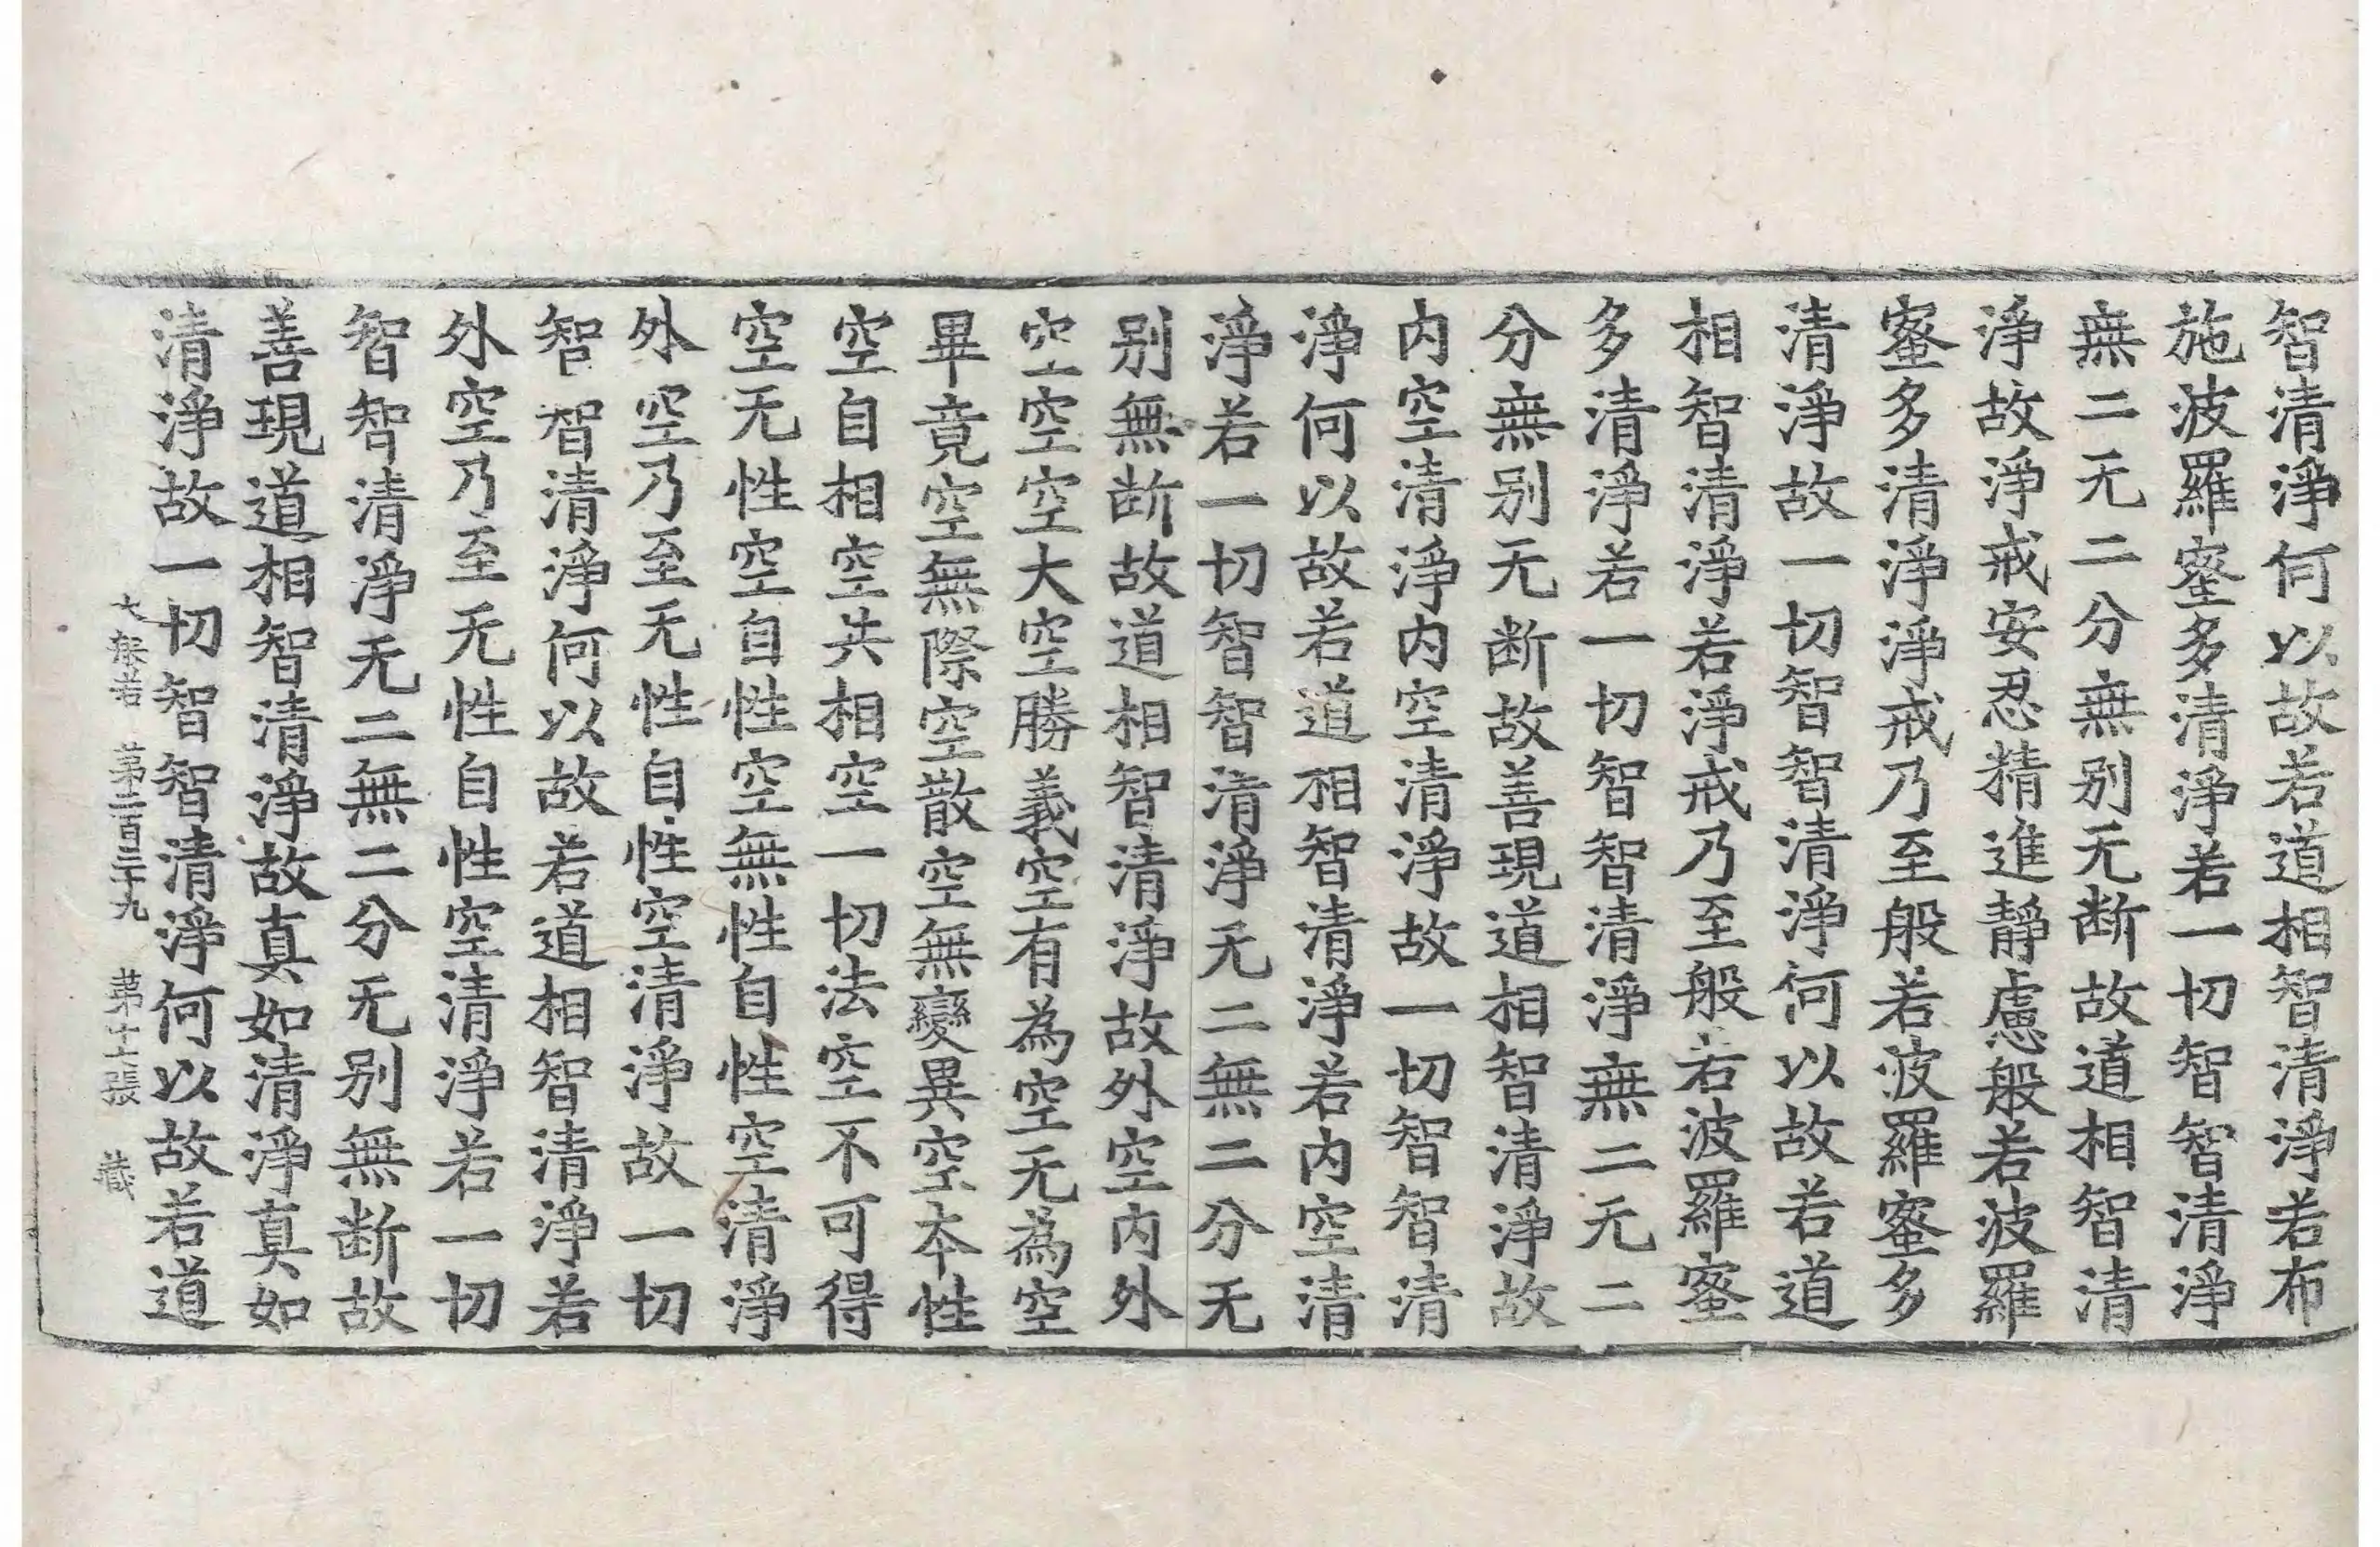 智清淨何以故若道相智清淨若布
施波羅蜜多清淨若一切智智清淨
無二无二分無别无断故道相智清
淨故淨戒安忍精進靜慮般若波羅
蜜多清淨淨戒乃至般若波羅蜜多
清淨故一切智智清淨何以故若道
相智清淨若淨戒乃至般若波羅蜜
多清淨若一切智智清淨無二无二
分無别无断故善現道相智清淨故
内空清淨内空清淨故一切智智清
淨何以故若道相智清淨若内空清
淨若一切智智清淨无二無二分无
别無断故道相智清淨故外空内外
空空空大空勝義空有為空无為空
畢竟空無際空散空無變異空本性
空自相空共相空一切法空不可得
空无性空自性空無性自性空清淨
外空乃至无性自性空清淨故一切
智智清淨何以故若道相智清淨若
外空乃至无性自性空清淨若一切
智智清淨无二無二分无别無断故
善現道相智清淨故真如清淨真如
清淨故一切智智清淨何以故若道
大般若 第二百三十九 第十七張 藏